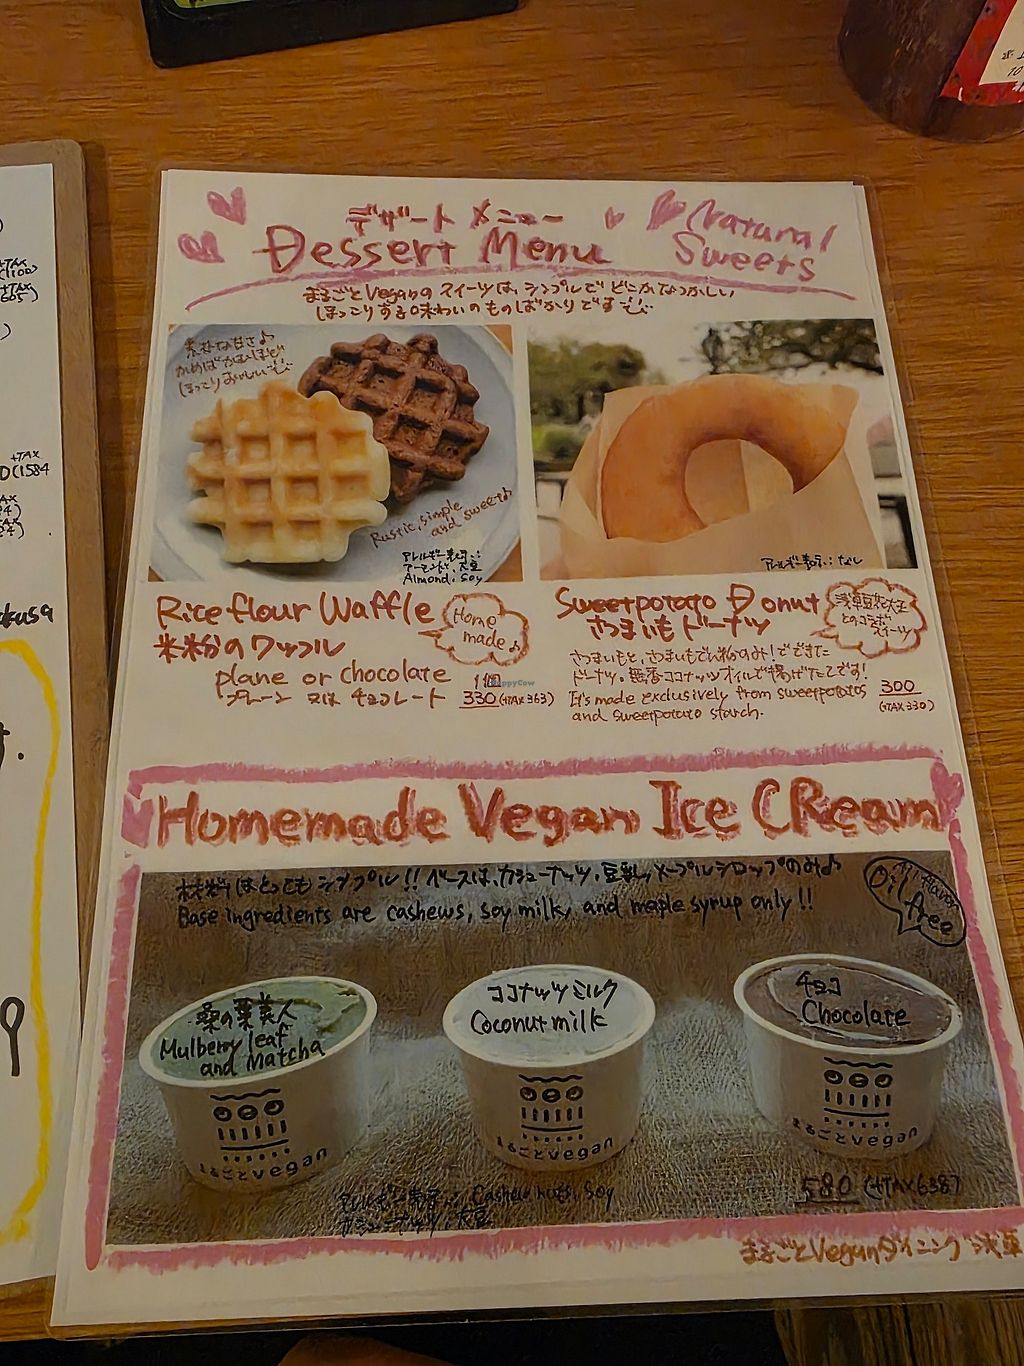 +TAX
(1100)
+TAX
605)
+TAX
(1584
デザート メニュー
Dessert Menu
Natural
Sweets
まるごとVeganの スイーツは、シンプルで どこかなつかしい
ほっこりする味わいのものばかりです
素朴な甘さ♪
かめばかむほど
ほっこりおいしい
Rustic, simple
and sweet♪
アレルギー表示:
アーモンド、大豆
Almond, Soy
アレルギー表示: なし
Rice flour Waffle
米粉のワッフル
Home
made♪
plane or chocolate
プレーン 又は チョコレート
1個
330 (+TAX 363)
Sweetpotato Donut
さつまいもドーナツ
浅草豆花大王
とのコラボ
スイーツ
さつまいもと、さつまいもでん粉のみ!でできた
ドーナツ。無香ココナッツオイルで揚げたてです!
It's made exclusively from sweetpotatos
and sweetpotato starch.
300
(+TAX 330)
HappyCow
Homemade Vegan Ice CReam
材料はとってもシンプル!! ベースは、カシューナッツ、豆乳、メープルシロップのみ♪
Base ingredients are cashews, soy milk, and maple syrup only!!
Oil
free
桑の葉美人
Mulberry leaf
and Matcha
ココナッツミルク
Coconut milk
チョコ
Chocolate
まるごとvegan
まるごとvegan
まるごとvegan
アレルギー表示: Cashew nuts, Soy
カシューナッツ、大豆
580 (+TAX 638)
まるごとVeganダイニング浅草